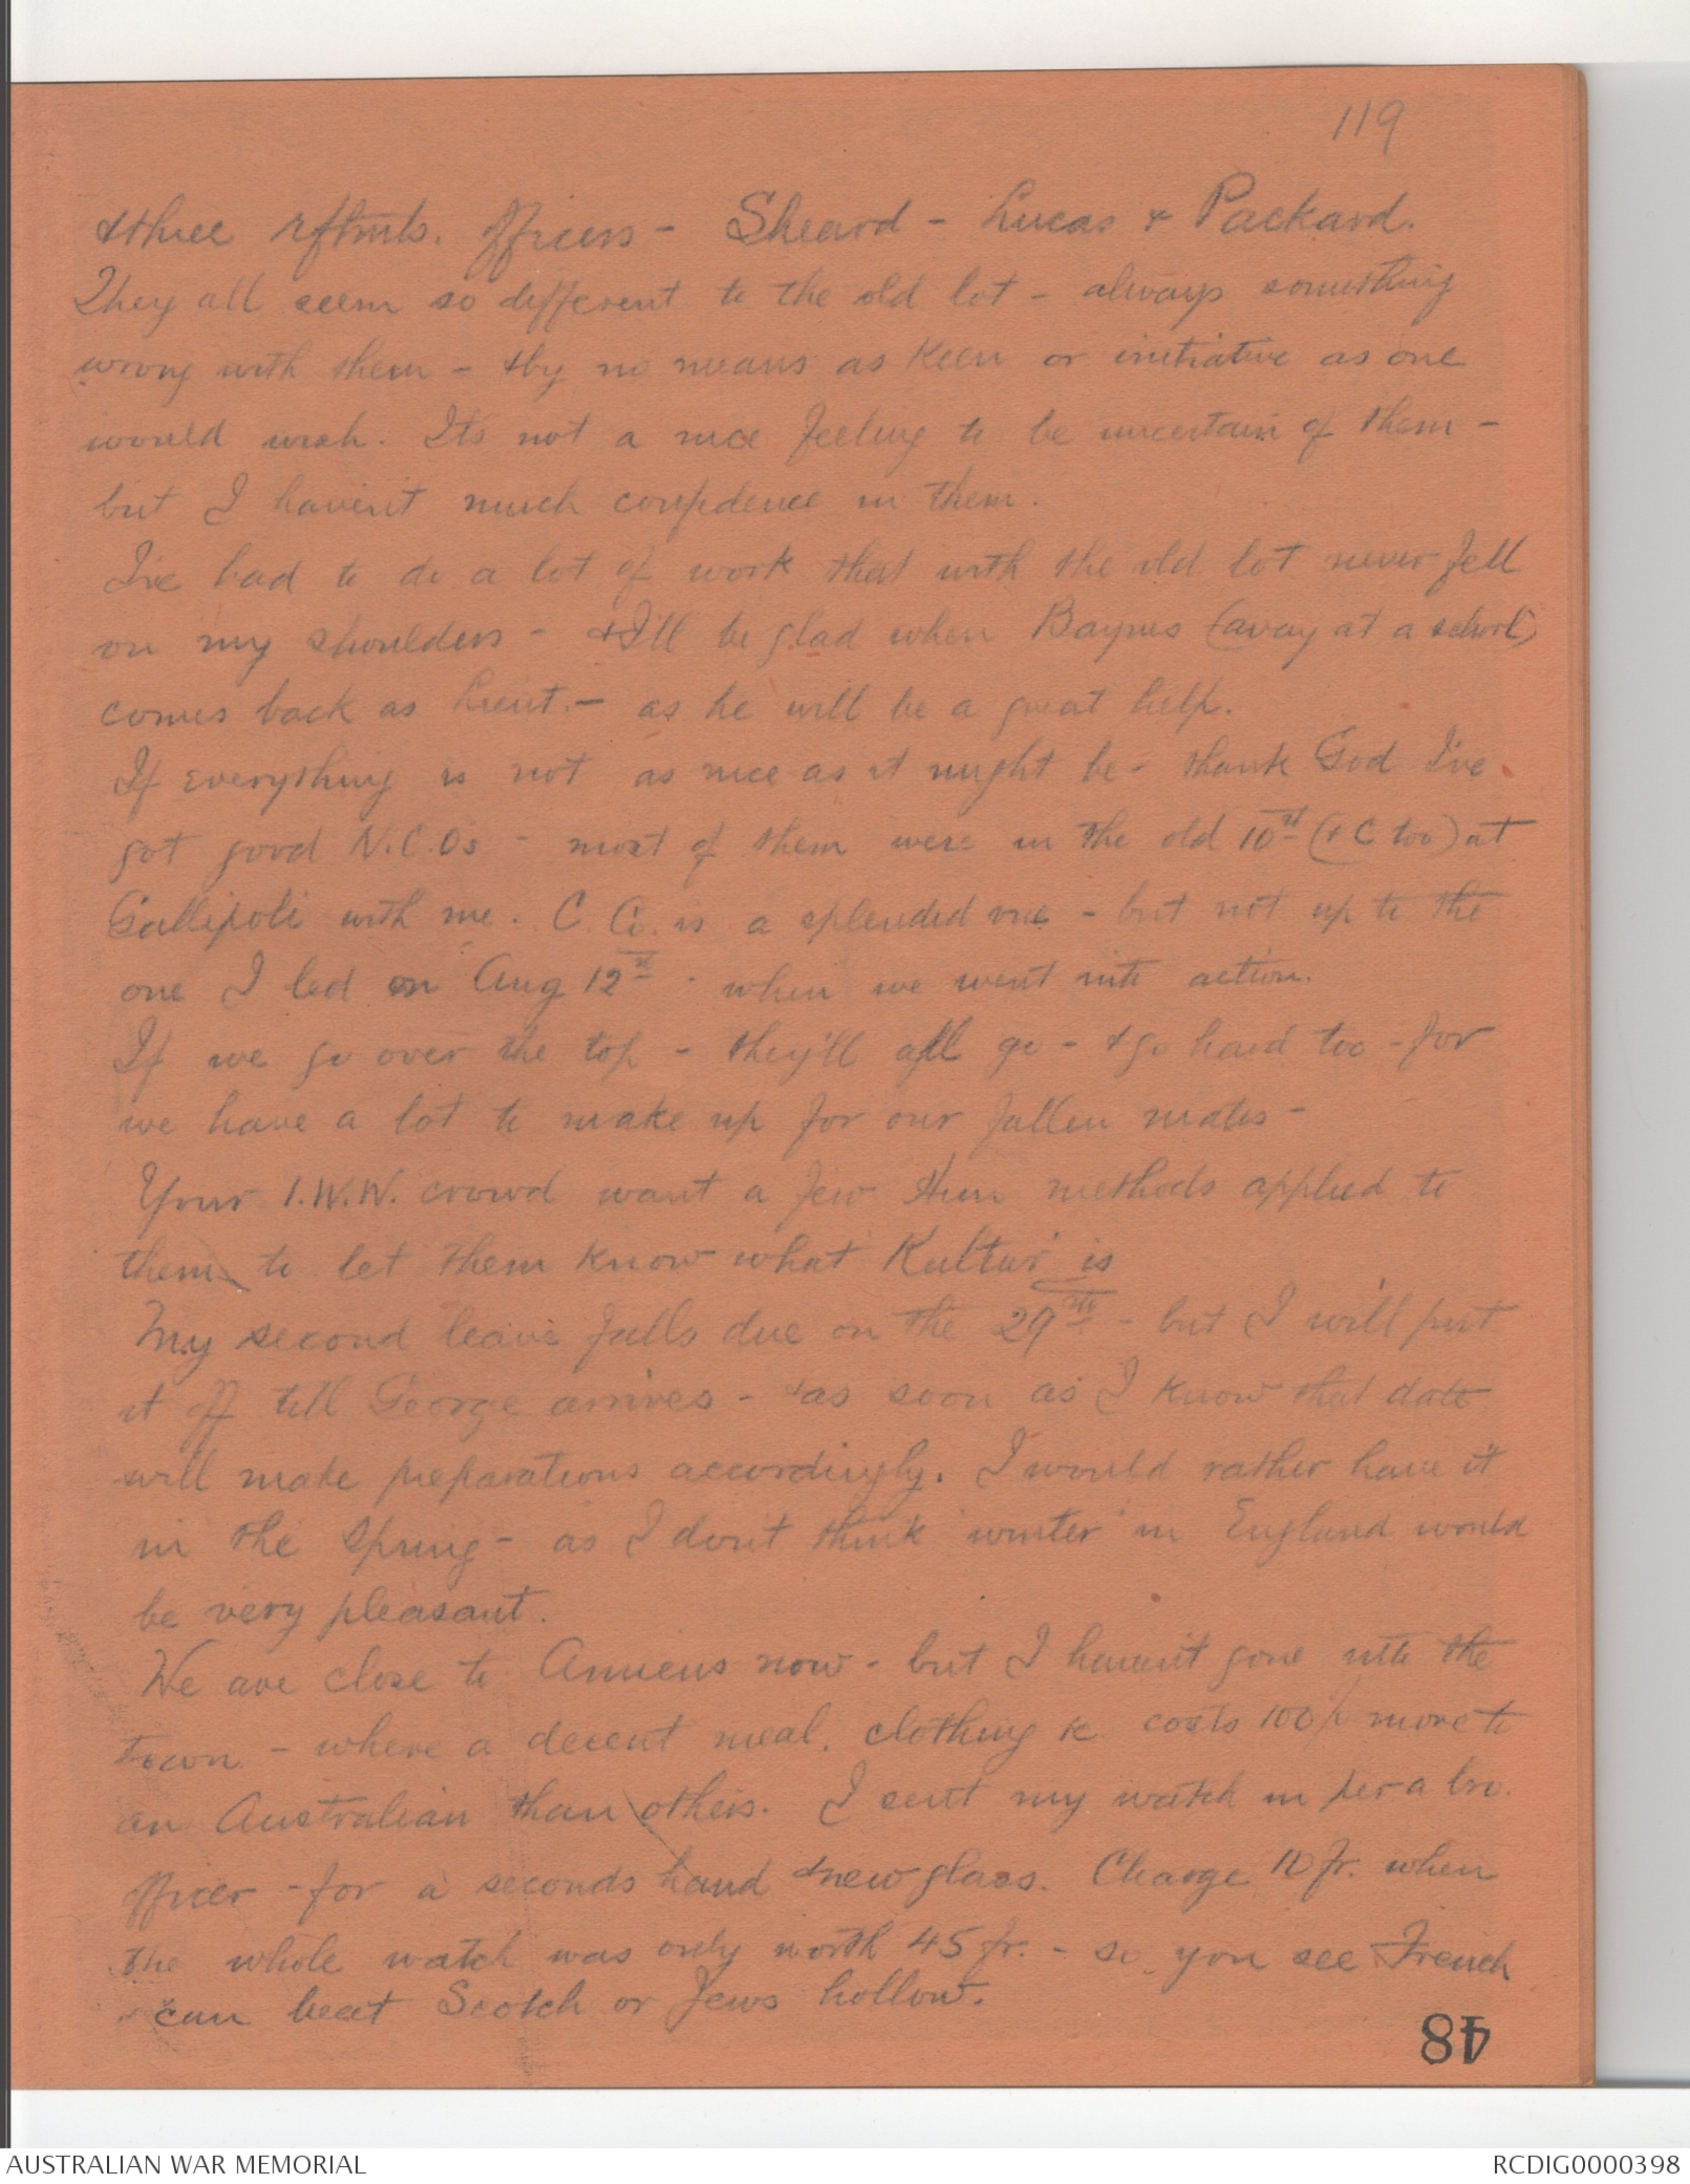 119
& three rftmts. officers - Sheard - Lucas & Packard.
They all seem so different to the old lot - always something
wrong with them - & by no means as keen or initiative as one
would wish. Its not a nice feeling to be uncertain of them -
but I haven't much confidence in them.
I've had to do a lot of work that with the old lot never fell
on my shoulders - & I'll be glad when Baynes (away at a school)
comes back as Lieut. - as he will be a great help.
If everything is not as nice as it might be - thank God I've
got good N.C.O's - most of them were in the old 10th (& C too) at
Gallipoli with me. C. Co. is a splendid one - but not up to the
one I led on Aug 12th - when we went into action.
If we go over the top - they'll all go - & go hard too - for
we have a lot to make up for our fallen mates -
Your I.W.W. crowd want a few Hun methods applied to
them to let them know what Kultur is
My second leave falls due on the 29th - but I will put
it off till George arrives - & as soon as I know that date
will make preparations accordingly. I would rather have it
in the Spring - as I don't think winter in England would
be very pleasant.
We are close to Amiens now - but I haven't gone into the
town - where a decent meal, clothing &c costs 100% more to
an Australian than others. I sent my watch in per a bro.
officer - for a seconds hand & new glass. Charge 10 fr. when
the whole watch was only worth 45 fr. - so you see French
can beat Scotch or Jews hollow.
48
AUSTRALIAN WAR MEMORIAL
RCDIG0000398